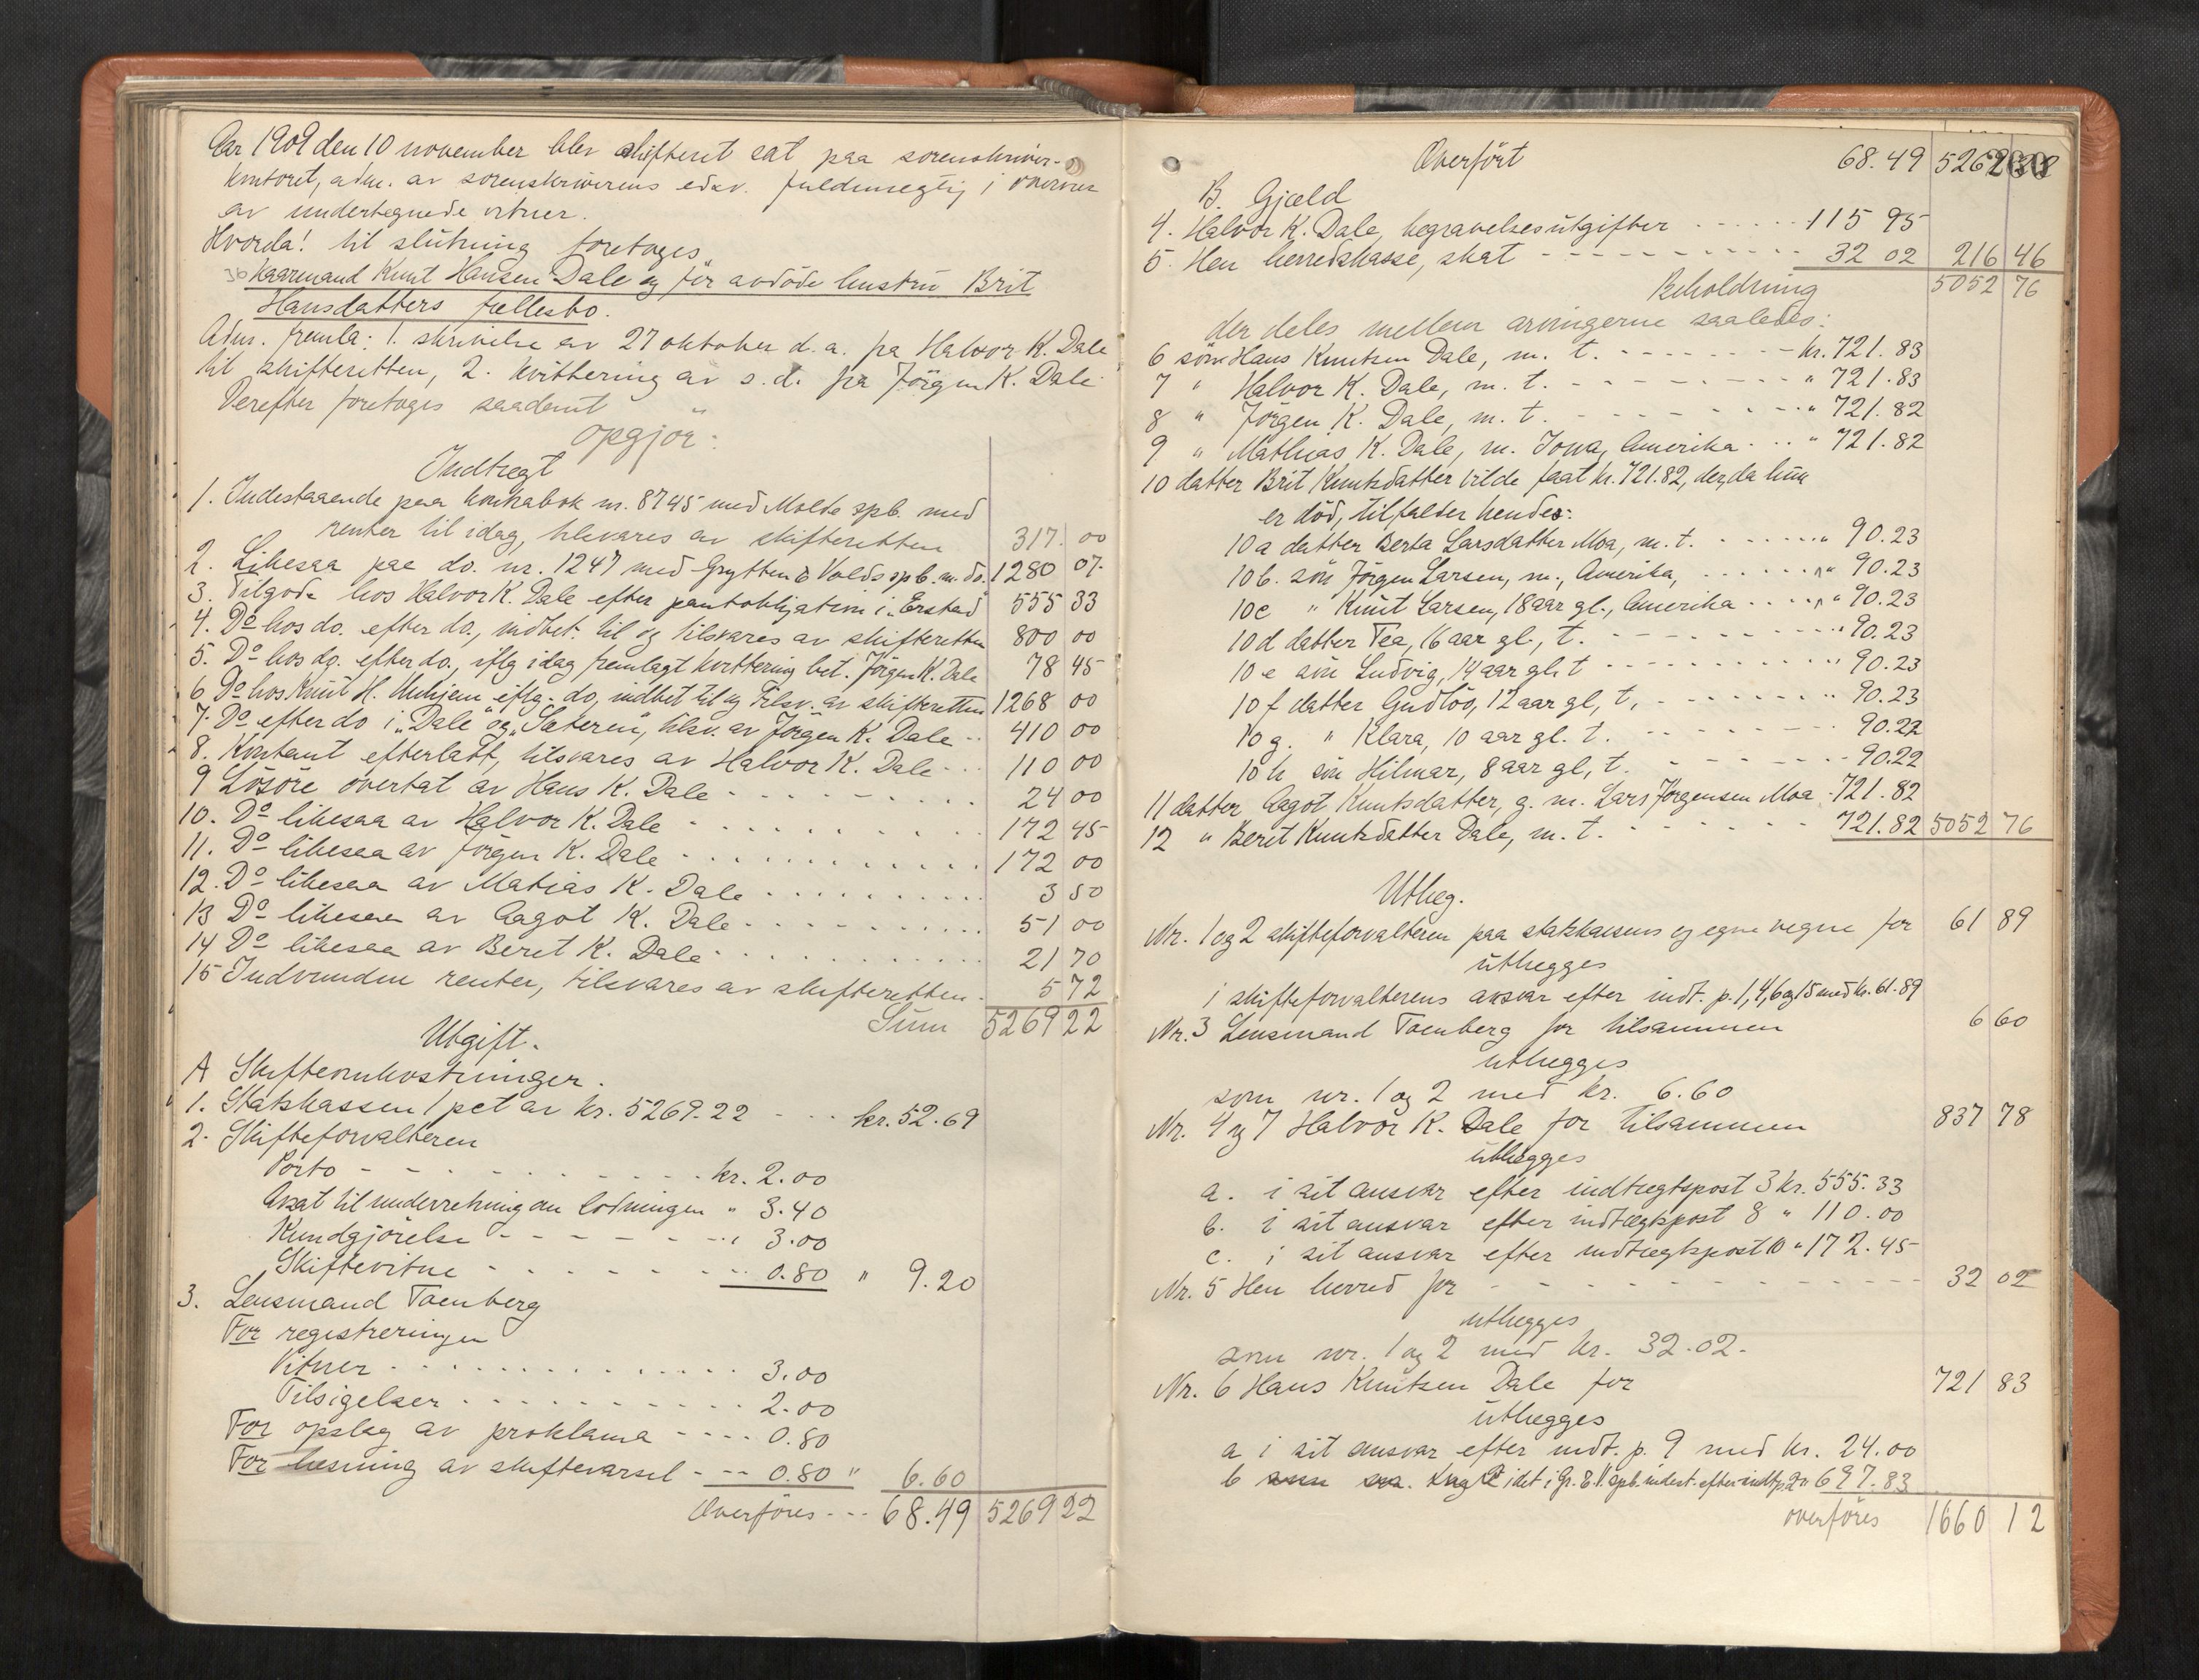 Aar 1909 den 10 november blev skifteret sat paa sorenskriver-
kontoret, adm. av sorenskriverens edsv. fuldmegtig i overvær
av undertegnede vitner.
Hvorda! til slutning foretoges
36 kaarmand Knut Hansen Dale og før avdøde hustru Brit
Hansdatters fællesbo.
Adm. fremla: 1. skrivelse av 27 oktober d.a. fra Halvor K. Dale
til skifteretten, 2. kvittering av s.d. fra Jørgen K. Dale.
Derefter foretoges saadant
opgjør:
Indtægt
1. Indestaaende paa kontrabok nr. 8745 med Molde spb. med
renter til idag, tilsvares av skifteretten 317. 00
2. Likesaa paa do. nr. 1247 med Grytten & Volds spb. m. do. 1280 07.
3. Tilgode hos Halvor K. Dale efter pantobligation i „Erstad" 555 33
4. Do hos do. efter do., indbet. til og tilsvares av skifteretten 800 00
5. Do hos do. efter do., iflg idag fremlagt kvittering bet. Jørgen K. Dale 78 45
6 Do hos Knut H. Unhjem iflg. do, indbet til og tilsv. av skifteretten 1268 00
7. Do efter do i „Dale" og „Sæteren", tilsv. av Jørgen K. Dale 410 00
8. Kontant efterlatt, tilsvares av Halvor K. Dale 110 00
9 Løsøre overtat av Hans K. Dale 24 00
10. Do likesaa av Halvor K. Dale 172 45
11. Do likesaa av Jørgen K. Dale 172 00
12. Do likesaa av Matias K. Dale 3 50
13 Do likesaa av Aagot K. Dale 51 00
14 Do likesaa av Beret K. Dale 21 70
15 Indvundne renter, tilsvares av skifteretten 5 72
Sum 5269 22
Utgift.
A Skifteomkostninger.
1. Statskassen 1 pct av kr. 5269.22 kr. 52.69
2. Skifteforvalteren
Porto kr. 2.00
Avsat til underretning om lodningen " 3.40
Kundgjørelse " 3.00
Skiftevitne 0.80 " 9.20
3. Lensmand Tornberg
For registreringen
Vitner 3.00
Tilsigelser 2.00
For opslag av proklama 0.80
For læsning av skiftevarsel 0.80 " 6.60
Overføres 68.49 5269 22
Overført 68.49 5269 22
B. Gjæld
4. Halvor K. Dale, begravelsesutgifter 115 95
5. Hen herredskasse, skat 32 02 216 46
Beholdning 5052 76
der deles mellem arvingerne saaledes:
6 søn Hans Knutsen Dale, m. t. kr. 721.83
7 " Halvor K. Dale, m. t. " 721.83
8 " Jørgen K. Dale, m. t. " 721.82
9 " Mathias K. Dale, m. Iowa, Amerika " 721.82
10 datter Brit Knutsdatter vilde faat kr. 721.82, der, da hun
er død, tilfalder hendes:
10 a datter Berta Larsdatter Moa, m. t. " 90.23
10 b. søn Jørgen Larsen, m., Amerika, " 90.23
10 c " Knut Larsen, 18 aar gl., Amerika " 90.23
10 d datter Tea, 16 aar gl., t. " 90.23
10 e søn Ludvig, 14 aar gl. t " 90.23
10 f datter Gudløv, 12 aar gl, t, " 90.23
10 g. " Klara, 10 aar gl. t. 90.22
10 h søn Hilmar, 8 aar gl., t. 90.22
11 datter Aagot Knutsdatter, g. m. Lars Jørgensen Moa 721.82
12 " Beret Knutsdatter Dale, m. t. 721.82 5052 76
Utlæg.
Nr. 1 og 2 skifteforvalteren paa statskassens og egne vegne for 61 89
utlægges
i skifteforvalterens ansvar efter indt. p. 1, 4, 6 og 15 med kr. 61.89
Nr. 3 Lensmand Tornberg for tilsammen 6 60
utlægges
som nr. 1 og 2 med kr. 6.60
Nr. 4 og 7 Halvor K. Dale for tilsammen 837 78
utlægges
a. i sit ansvar efter indtægtspost 3 kr. 555.33
b. i sit ansvar efter indtægtspost 8 " 110.00
c. i sit ansvar efter indtægtspost 10 " 172.45
Nr. 5 Hen herred for 32 02
utlægges
som nr. 1 og 2 med kr. 32.02.
Nr. 6 Hans Knutsen Dale for 721 83
utlægges
a i sit ansvar efter indt. p. 9 med kr. 24.00
b i det i Gr. & V. spb. indest. efter indt. p. 2 " 697.83
overføres 1660 12